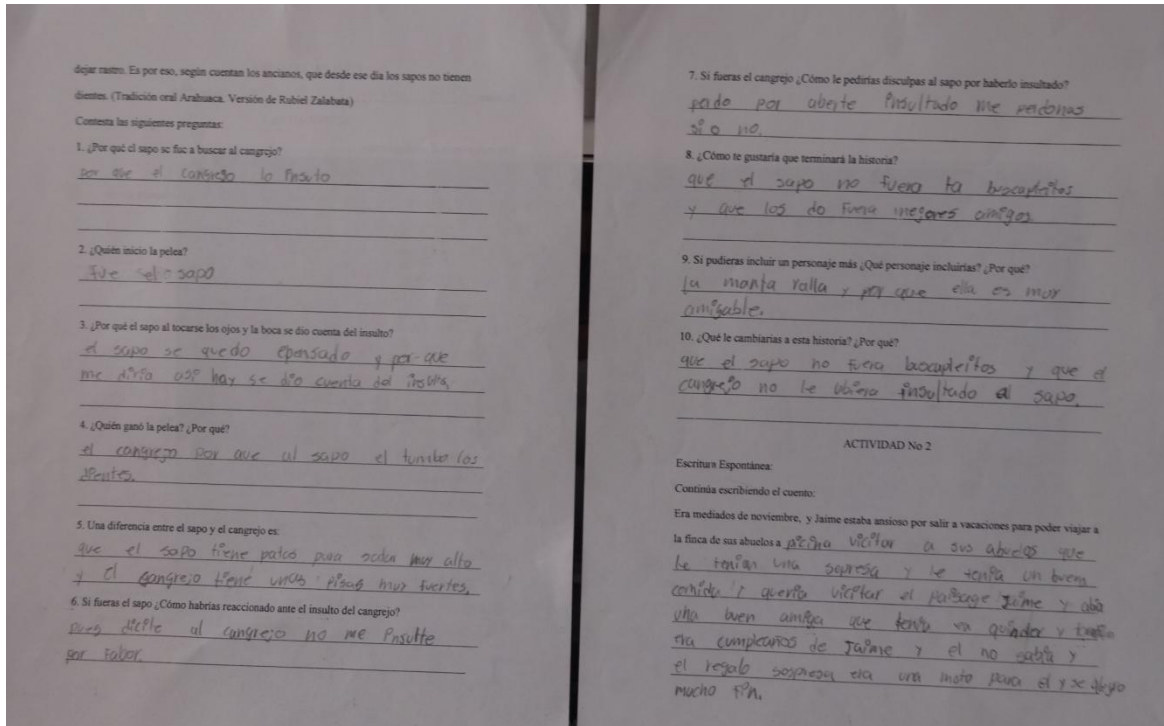 dejar rastro. Es por eso, según cuentan los ancianos, que desde ese día los sapos no tienen
dientes. (Tradición oral Arahuaca. Versión de Rubiel Zalabata)
Contesta las siguientes preguntas:
1. ¿Por qué el sapo se fue a buscar al cangrejo?
por que el cangrejo lo insulto
2. ¿Quién inicio la pelea?
fue el sapo
3. ¿Por qué el sapo al tocarse los ojos y la boca se dio cuenta del insulto?
el sapo se quedo epensado y por que
me diria asi hay se dio cuenta del insulto,
4. ¿Quién ganó la pelea? ¿Por qué?
el cangrejo por que al sapo el tumbo los
dientes.
5. Una diferencia entre el sapo y el cangrejo es:
que el sapo tiene patas para salta muy alto
y el cangrejo tiene unas pisas muy fuertes,
6. Si fueras el sapo ¿Cómo habrías reaccionado ante el insulto del cangrejo?
pues dicile al cangrejo no me insulte
por fabor.
7. Si fueras el cangrejo ¿Cómo le pedirías disculpas al sapo por haberlo insultado?
perdo por aberte insultado me perdonas
si o no.
8. ¿Cómo te gustaría que terminará la historia?
que el sapo no fuera ta buscapleitos
y que los do fuera mejores amigos
9. Si pudieras incluir un personaje más ¿Qué personaje incluirías? ¿Por qué?
la manta ralla y por que ella es muy
amigable.
10. ¿Qué le cambiarías a esta historia? ¿Por qué?
que el sapo no fuera buscapleitos y que el
cangrejo no le ubiera insultado al sapo,
ACTIVIDAD No 2
Escritura Espontánea:
Continúa escribiendo el cuento:
Era mediados de noviembre, y Jaime estaba ansioso por salir a vacaciones para poder viajar a
la finca de sus abuelos a vicitar a sus abuelos que
le tenian una sopresa y le tenia un buem
comida y queria vicitar el paisage Jaime y abia
una buen amiga que tenia y
era cumpleaños de Jaime y el no sabia y
el regalo sospresa era una moto para el y se
mucho fin.